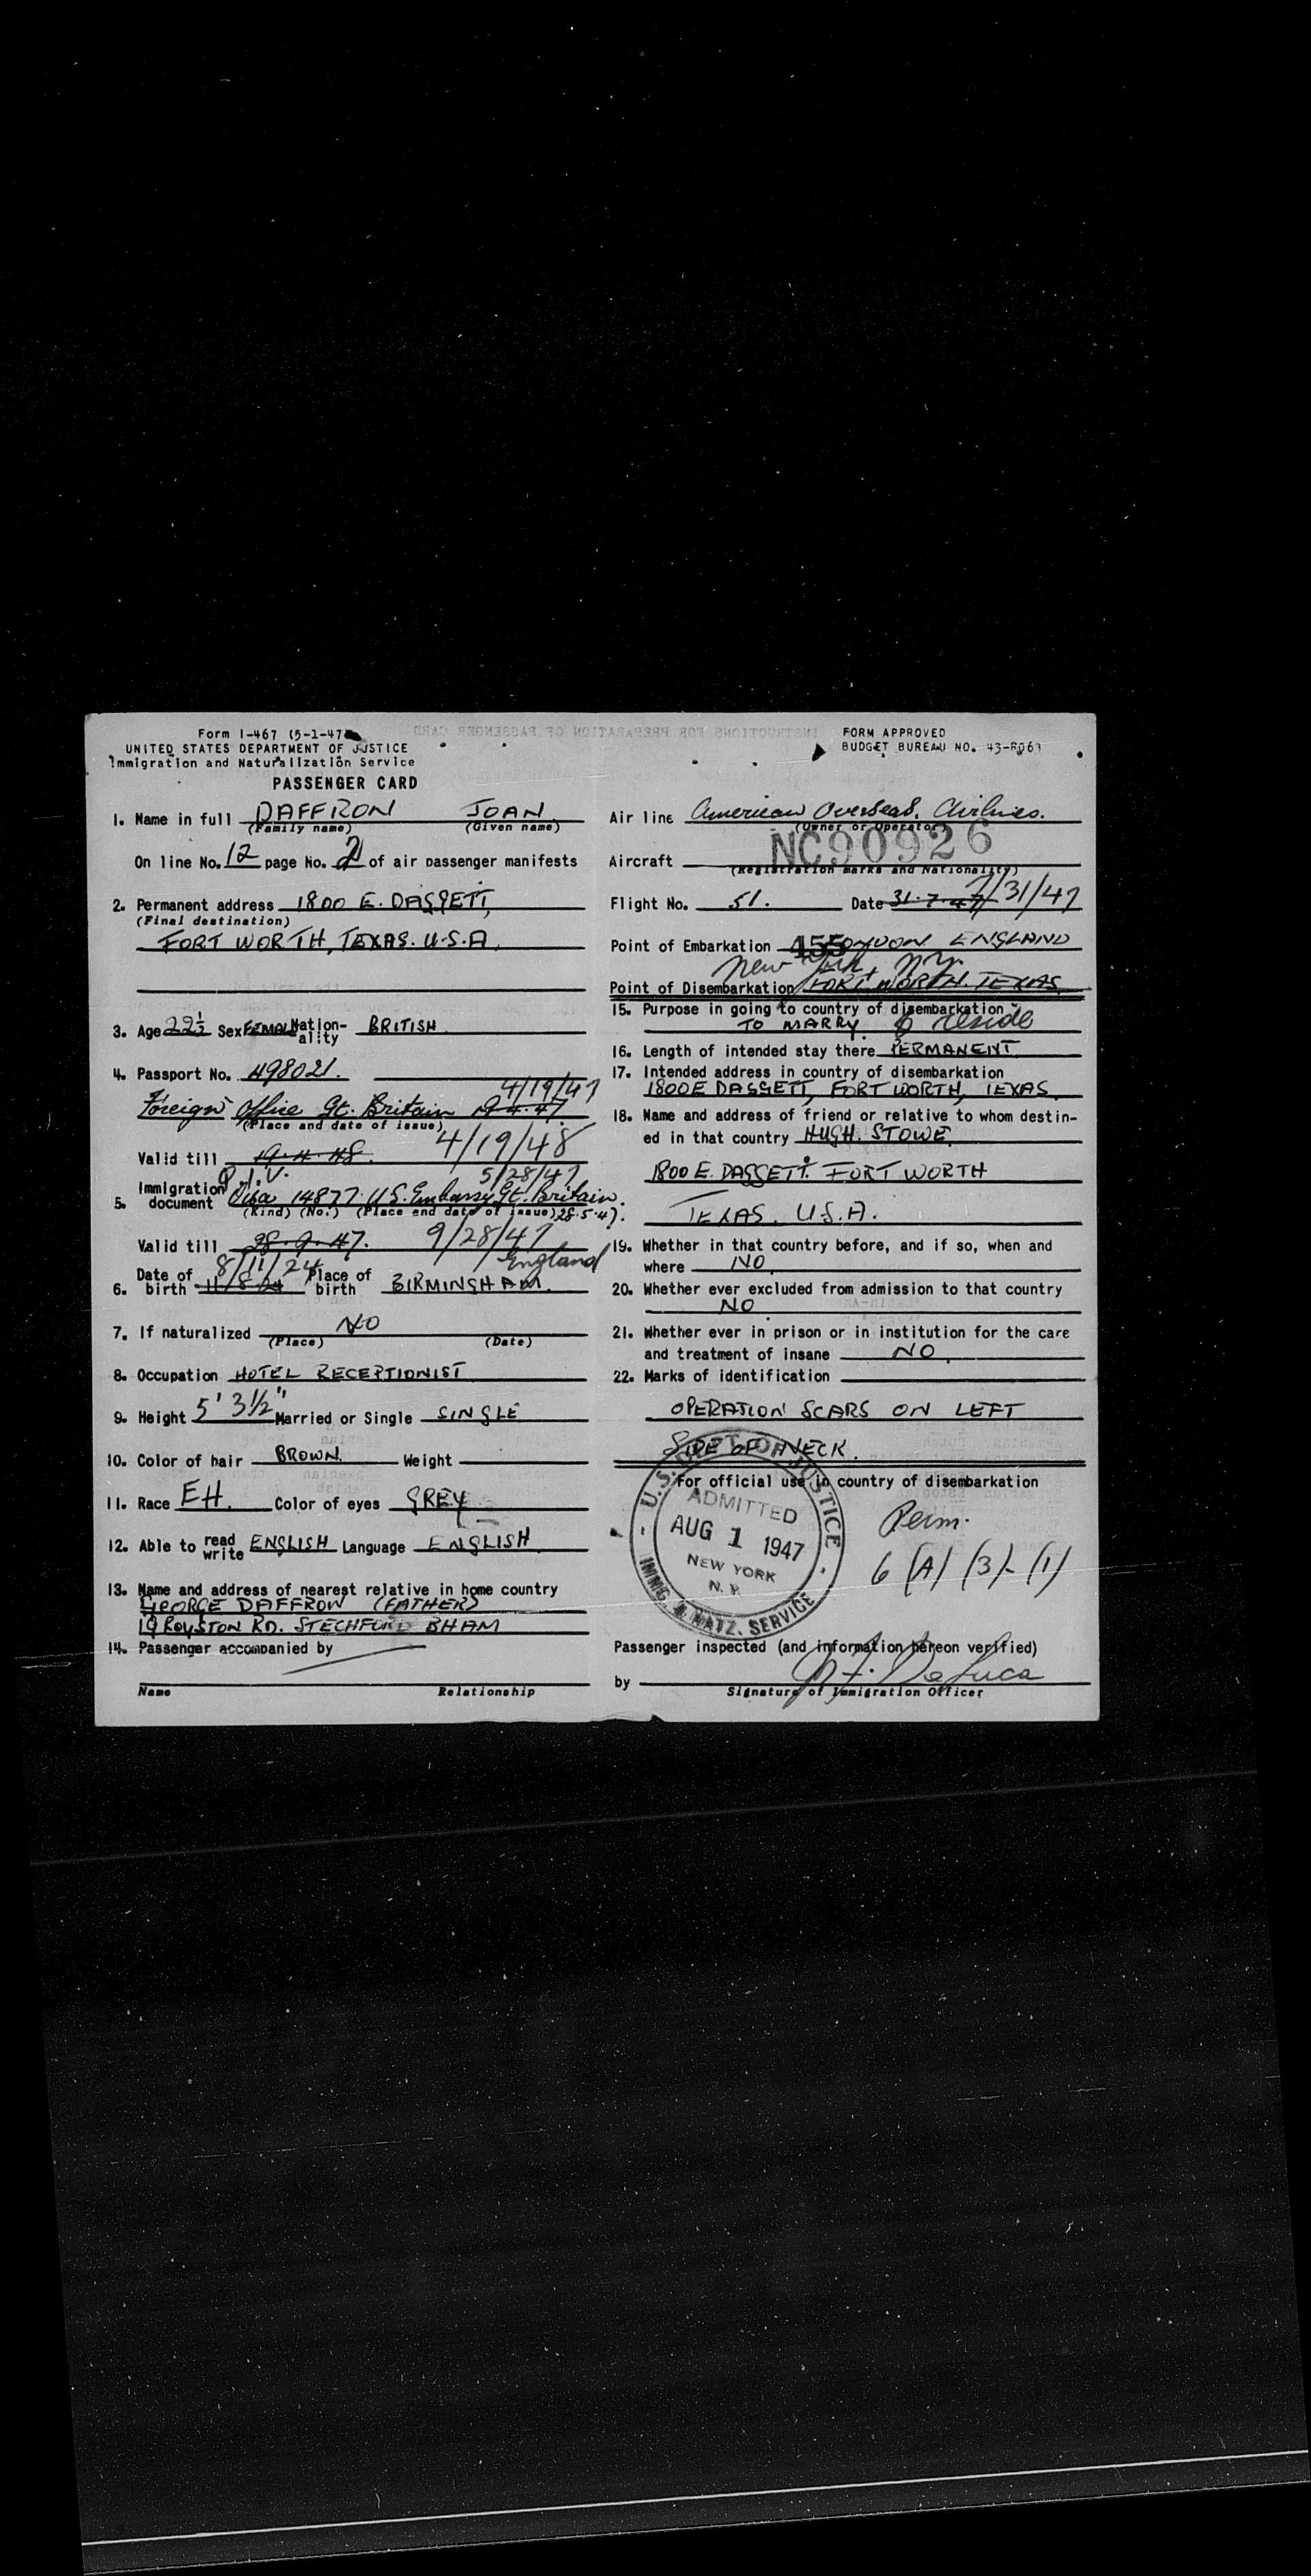 Form I-467 (5-1-47)
UNITED STATES DEPARTMENT OF JUSTICE
Immigration and Naturalization Service
PASSENGER CARD
FORM APPROVED
BUDGET BUREAU NO. 43-R063
INSTRUCTIONS FOR PREPARATION OF PASSENGER CARD
1. Name in full DAFFRON JOAN
(Family name) (Given name)
On line No. 12 page No. 2 of air passenger manifests
2. Permanent address 1800 E. DAGGETT,
(Final destination)
FORT WORTH, TEXAS. U.S.A.
3. Age 22½ Sex FEMALE Nationality BRITISH
4. Passport No. 498021.
4/19/47
Foreign Office Gt. Britain 19.4.47
(Place and date of issue)
Valid till 19.4.48. 4/19/48
Q.I.V. 5/28/47
5. Immigration document Visa 14877. U.S. Embassy Gt. Britain.
(Kind) (No.) (Place and date of issue) 28.5.47.
Valid till 28.9.47. 9/28/47
8/11/24 England
6. Date of birth 11/8/24 Place of birth BIRMINGHAM.
7. If naturalized NO
(Place) (Date)
8. Occupation HOTEL RECEPTIONIST
9. Height 5' 3½" Married or Single SINGLE
10. Color of hair BROWN. Weight
11. Race EH. Color of eyes GREY
12. Able to read write ENGLISH Language ENGLISH
13. Name and address of nearest relative in home country
GEORGE DAFFRON (FATHER)
19 ROYSTON RD. STECHFORD BHAM
14. Passenger accompanied by
Name Relationship
Air line American Overseas. Airlines.
(Owner or Operator)
Aircraft NC90926
(Registration marks and Nationality)
Flight No. 51. Date 31.7.47 7/31/47
Point of Embarkation 455 LONDON ENGLAND
New York, N.Y.
Point of Disembarkation FORT WORTH. TEXAS
15. Purpose in going to country of disembarkation
TO MARRY. & reside
16. Length of intended stay there PERMANENT
17. Intended address in country of disembarkation
1800 E DAGGETT, FORT WORTH, TEXAS.
18. Name and address of friend or relative to whom destined in that country HUGH. STOWE.
1800 E. DAGGETT. FORT WORTH
TEXAS. U.S.A.
19. Whether in that country before, and if so, when and
where NO
20. Whether ever excluded from admission to that country
NO
21. Whether ever in prison or in institution for the care
and treatment of insane NO.
22. Marks of identification
OPERATION SCARS ON LEFT
SIDE OF NECK.
For official use in country of disembarkation
U.S. DEPT. OF JUSTICE
ADMITTED
AUG 1 1947
NEW YORK
N. Y.
IMMIG. & NATZ. SERVICE
Perm.
6 (A) (3)-(1)
Passenger inspected (and information hereon verified)
by De Luca
Signature of Immigration Officer